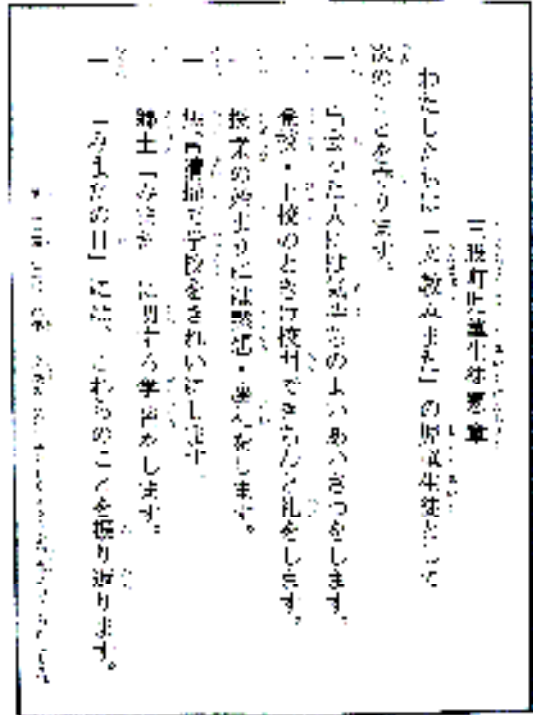 三股町児童生徒憲章
わたしたちは「文教みまた」の児童生徒として
次のことを守ります。
一 出会った人には気持ちのよいあいさつをします。
一 登校・下校のときは校門できちんと礼をします。
一 授業の始まりには黙想・座礼をします。
一 無言清掃で学校をきれいにします。
一 郷土「みまた」に関する学習をします。
一 「みまたの日」には、これらのことを振り返ります。